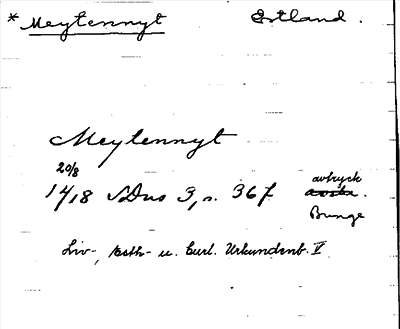 *Meytennyt Estland.
Meytennyt
20/8
1418 SDns 3, n. 367 avtryck
avskr.
Bunge
Liv-, Esth- u. Curl. Urkundenb. V